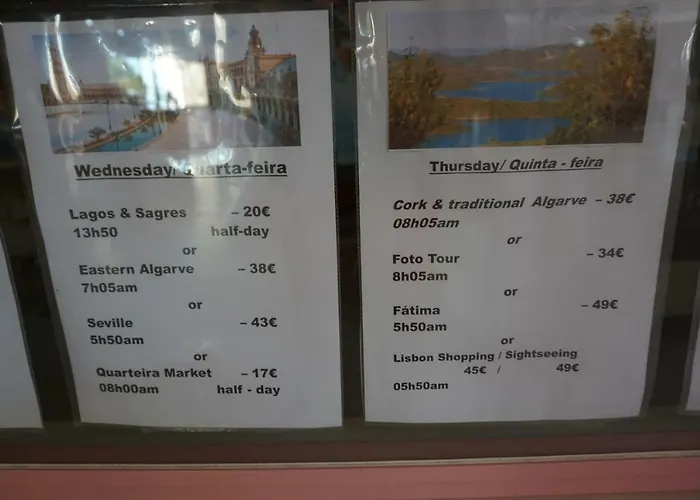 Wednesday/ Quarta-feira
Lagos & Sagres – 20€
13h50 half-day
or
Eastern Algarve – 38€
7h05am
or
Seville – 43€
5h50am
or
Quarteira Market – 17€
08h00am half - day
Thursday/ Quinta - feira
Cork & traditional Algarve – 38€
08h05am
or
Foto Tour – 34€
8h05am
or
Fátima – 49€
5h50am
or
Lisbon Shopping / Sightseeing
45€ / 49€
05h50am